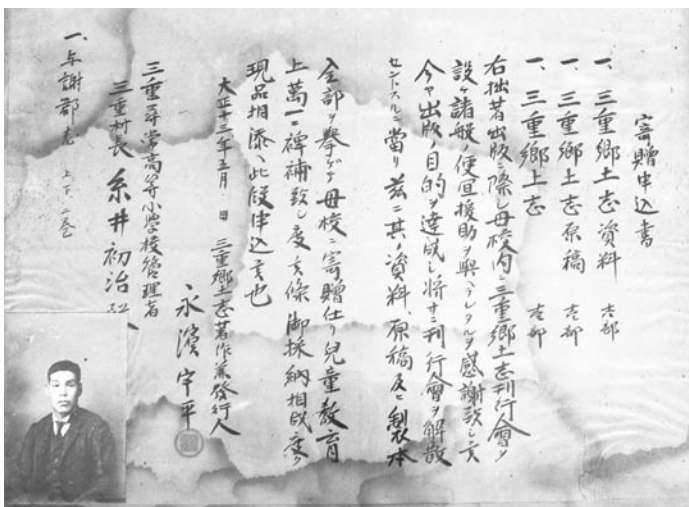 寄贈申込書
一、三重郷土志資料 壱部
一、三重郷土志原稿 壱部
一、三重郷土志 壱部
右拙著出版ニ際シ母校内ニ三重郷土志刊行會ヲ
設ケ諸般ノ便宜援助ヲ與ヘラレタルヲ感謝致シ
今ヤ出版ノ目的ヲ達成シ将サニ刊行會ヲ解散
セントスルニ當リ茲ニ其ノ資料、原稿及ヒ製本
全部ヲ擧ゲテ母校ニ寄贈仕リ兒童教育
上萬一ニ裨補致シ度候條御採納相成度ク
現品相添ヘ此段申込候也
大正十三年五月 日 三重郷土志著作兼發行人
永濱宇平
三重尋常高等小學校管理者
三重村長 糸井初治殿
一、与謝郡志 上下二巻